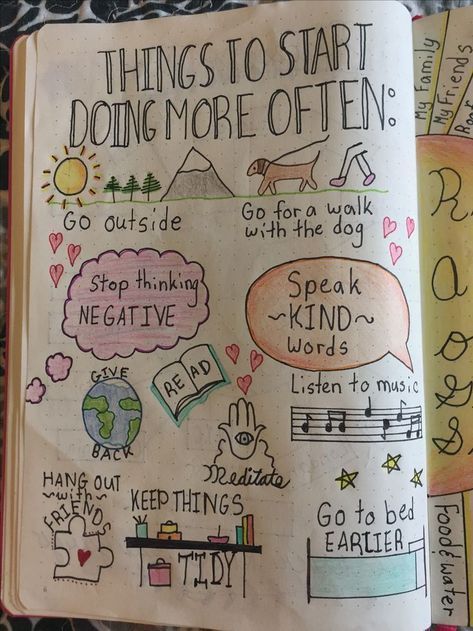 THINGS TO START
DOING MORE OFTEN:
Go outside
Go for a walk
with the dog
Stop thinking
NEGATIVE
Speak
~KIND~
Words
GIVE
BACK
READ
Listen to music
Meditate
HANG OUT
~with~
FRIENDS
KEEP THINGS
TIDY
Go to bed
EARLIER
My Family
My Friends
R
a
o
s
s
Food & water